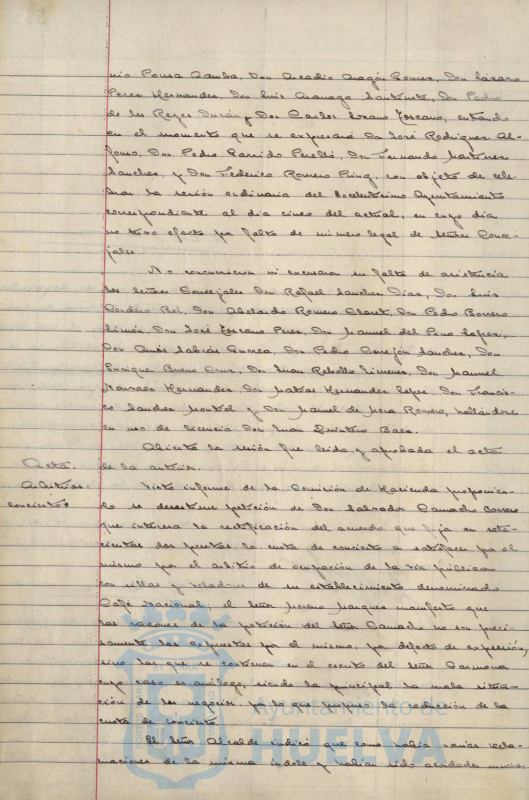 nio Ponsa Camba, Don Arcadio Aragón Gomez, Don Lázaro
Perez Hernandez, Don Luis Aranaga Santurte, Don Pedro
de los Reyes Durán y Don Carlos Lozano Toscano, entrando
en el momento que se expresará Don José Rodriguez Al-
fonso, Don Pedro Garrido Perelló, Don Fernando Martinez
Sanchez, y Don Federico Romero Ping, con objeto de cele-
brar la sesión ordinaria del Excelentísimo Ayuntamiento
correspondiente al dia cinco del actual, en cuyo dia
no tuvo efecto por falta de número legal de Señores Conce-
jales.
No concurrieron ni excusaron su falta de asistencia
los Señores Concejales Don Rafael Sanchez Diaz, Don Luis
Cordero Bel, Don Abelardo Romero Claret, Don Pedro Borrero
Limón, Don José Toscano Perez, Don Manuel del Pino Lopez,
Don Amós Sabrás Gurrea, Don Pedro Cerejón Sanchez, Don
Enrique Bueno Cruz, Don Juan Rebollo Jimenez, Don Manuel
Narvaez Hernandez, Don Matías Hernandez Lopez, Don Francis-
co Sanchez Montiel y Don Manuel de Mora Romero, hallándose
en uso de licencia Don Juan Quintero Baez.
Abierta la sesión fue leida y aprobada el acta
Acta. de la anterior.
Arbitrios: Visto informe de la Comisión de Hacienda proponien-
conciertos do se desestime petición de Don Salvador Camacho Borrero
que interesa la rectificación del acuerdo que fija en sete-
cientas dos pesetas la cuota de concierto a satisfacer por el
mismo por el arbitrio de ocupación de la via pública
con sillas y veladores de su establecimiento denominado
Café Nacional, el Señor Moreno Marquez manifestó que
las razones de la petición del Señor Camacho no son preci-
samente las expuestas por el mismo, por defecto de expresión,
sino las que se contienen en el escrito del Señor Carmona
cuyo caso es análogo, siendo la principal la mala situa-
ción de los negocios por lo que propuso la reducción de la
cuota de concierto.
El Señor Alcalde indicó que como había varias recla-
maciones de la misma indole y habian sido acordadas muchas
Ayuntamiento de
HUELVA